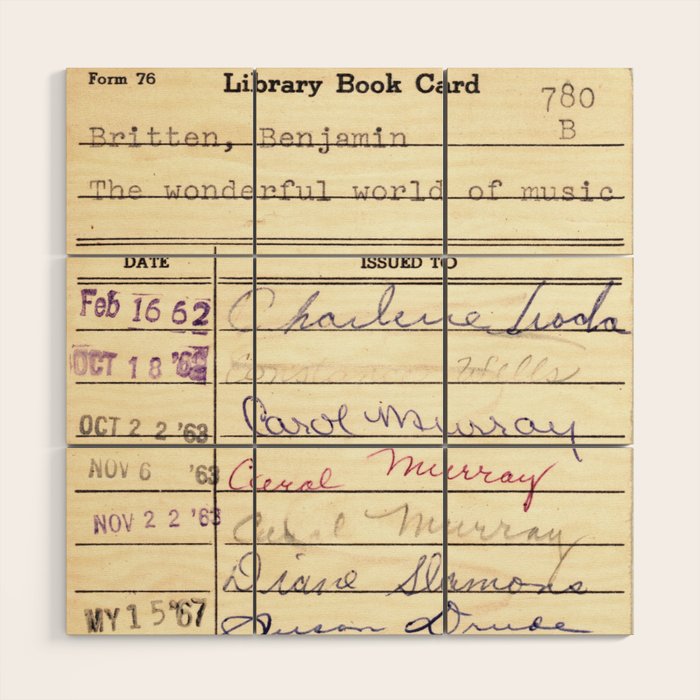 Form 76 Library Book Card
780
B
Britten, Benjamin
The wonderful world of music
DATE ISSUED TO
Feb 16 62 Charlene
OCT 18 '63 Constance Wells
OCT 22 '63 Carol Murray
NOV 6 '63 Carol Murray
NOV 22 '63 Carol Murray
Diane
MY 15 '67 Susan